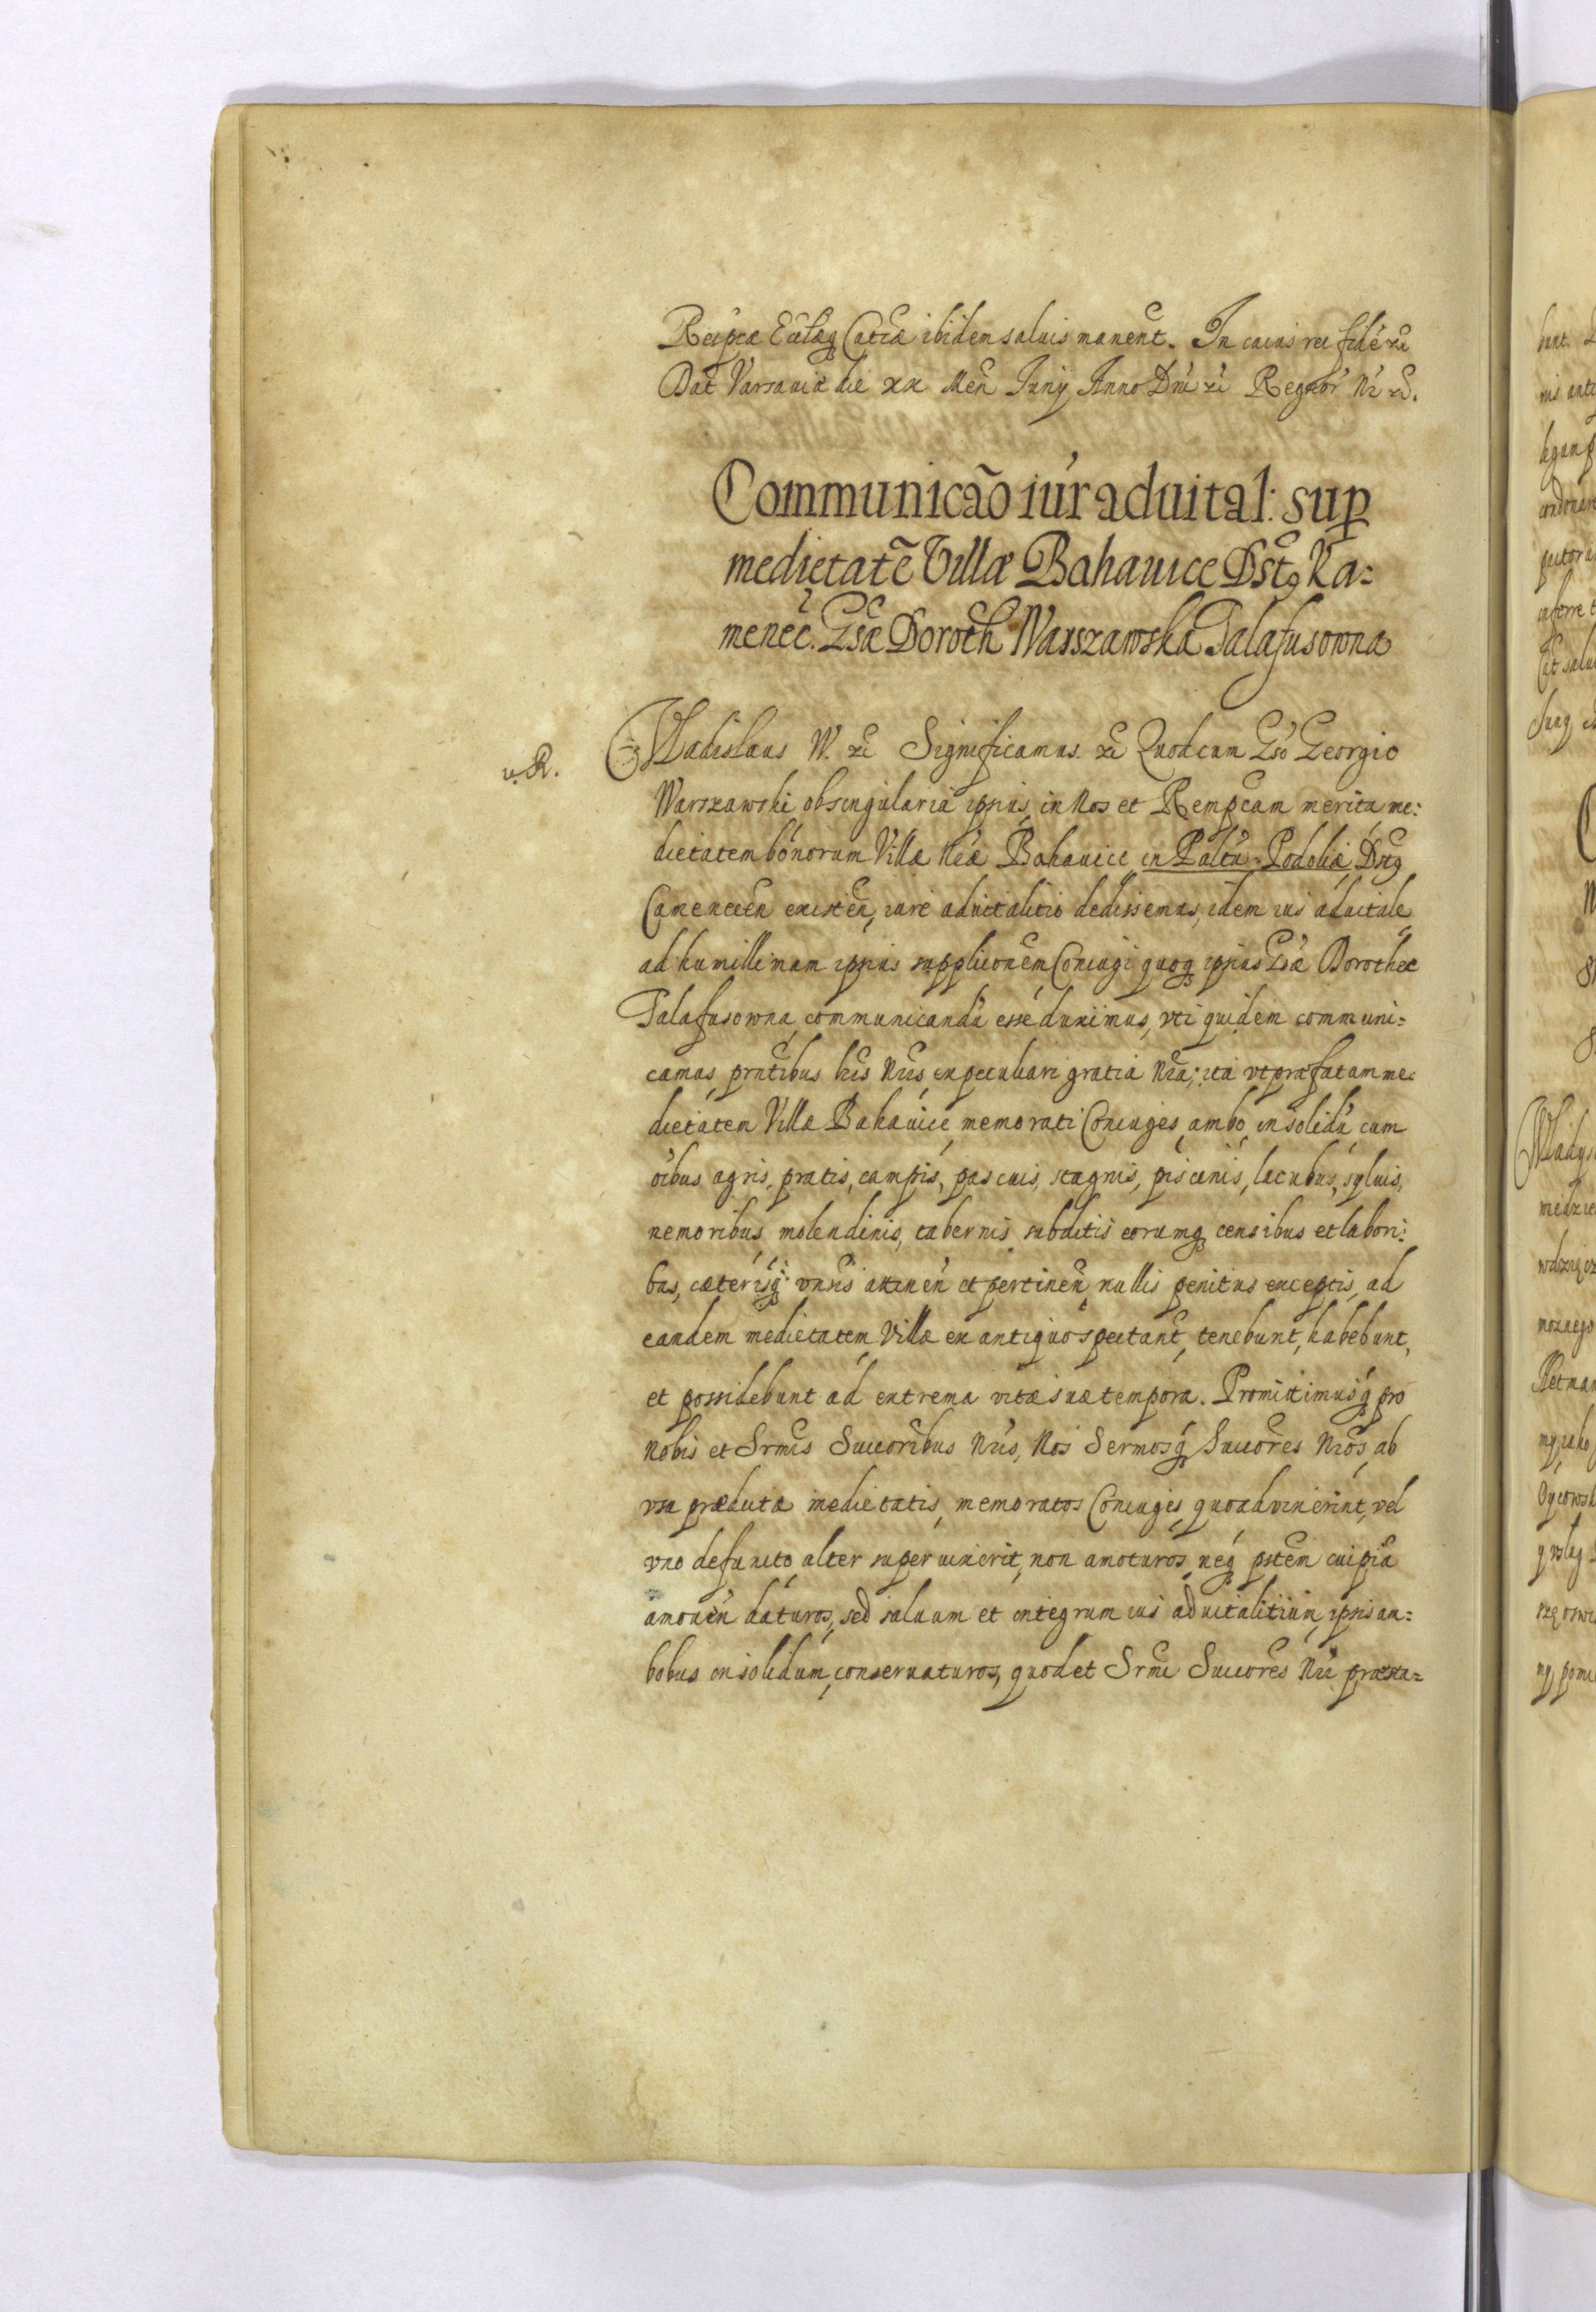 Reipcæ Ecclæq Catcæ ibidem saluis manent. In cuius rei fidē ꝛc
Dat Varsauiæ die xx Men Iunÿ Anno Dni ꝛc Regnor Nr ꝛc.
Communicão iúr aduital: sup
medietatē Villæ Bahauice Dstq Ka:
menec. Gsæ Doroth Warszawska Talafusowna
v. R.
Wladislaus IV. ꝛc Significamus ꝛc Quod cum Gso Georgio
Warszawski ob singularia ipsius in Nos et Rempcam merita me:
dietatem bonorum Villæ Nræ Bahauice in Paltu Podoliæ Dstq
Camenecen existen, iure aduitalitio dedissemus, idem ius aduitale
ad humillimam ipsius supplicoñem Coniugi quoq ipsius Gsæ Dorotheæ
Talafusowna communicandū esse duximus, vti quidem communi:
camus pntibus lris Nris ex peculiari gratia Nra; ita vt præfatam me:
dietatem Villæ Bahauice memorati Coniuges ambo in solidū cum
oibus agris, pratis, campis, pascuis, stagnis, piscinis, lacubus, syluis,
nemoribus molendinis, tabernis subditis eorumq censibus et labori:
bus, cæterisq vnsis attinen et pertinen nullis penitus exceptis, ad
eandem medietatem Villæ ex antiquo spectant, tenebunt, habebunt,
et possidebunt ad extrema vitæ suæ tempora. Promittimusq pro
Nobis et Srmis Succoribus Nris, Nos Sermosq Succores Nros, ab
vsu prædictæ medietatis, memoratos Coniuges, quoad vixerint, vel
vno defuncto alter superuixerit, non amoturos neq pstem cuipia
amouen daturos, sed saluum et integrum ius aduitalitium ipsis am:
bobus in solidum, conseruaturos, quod et Srmi Succores Nri præsta: